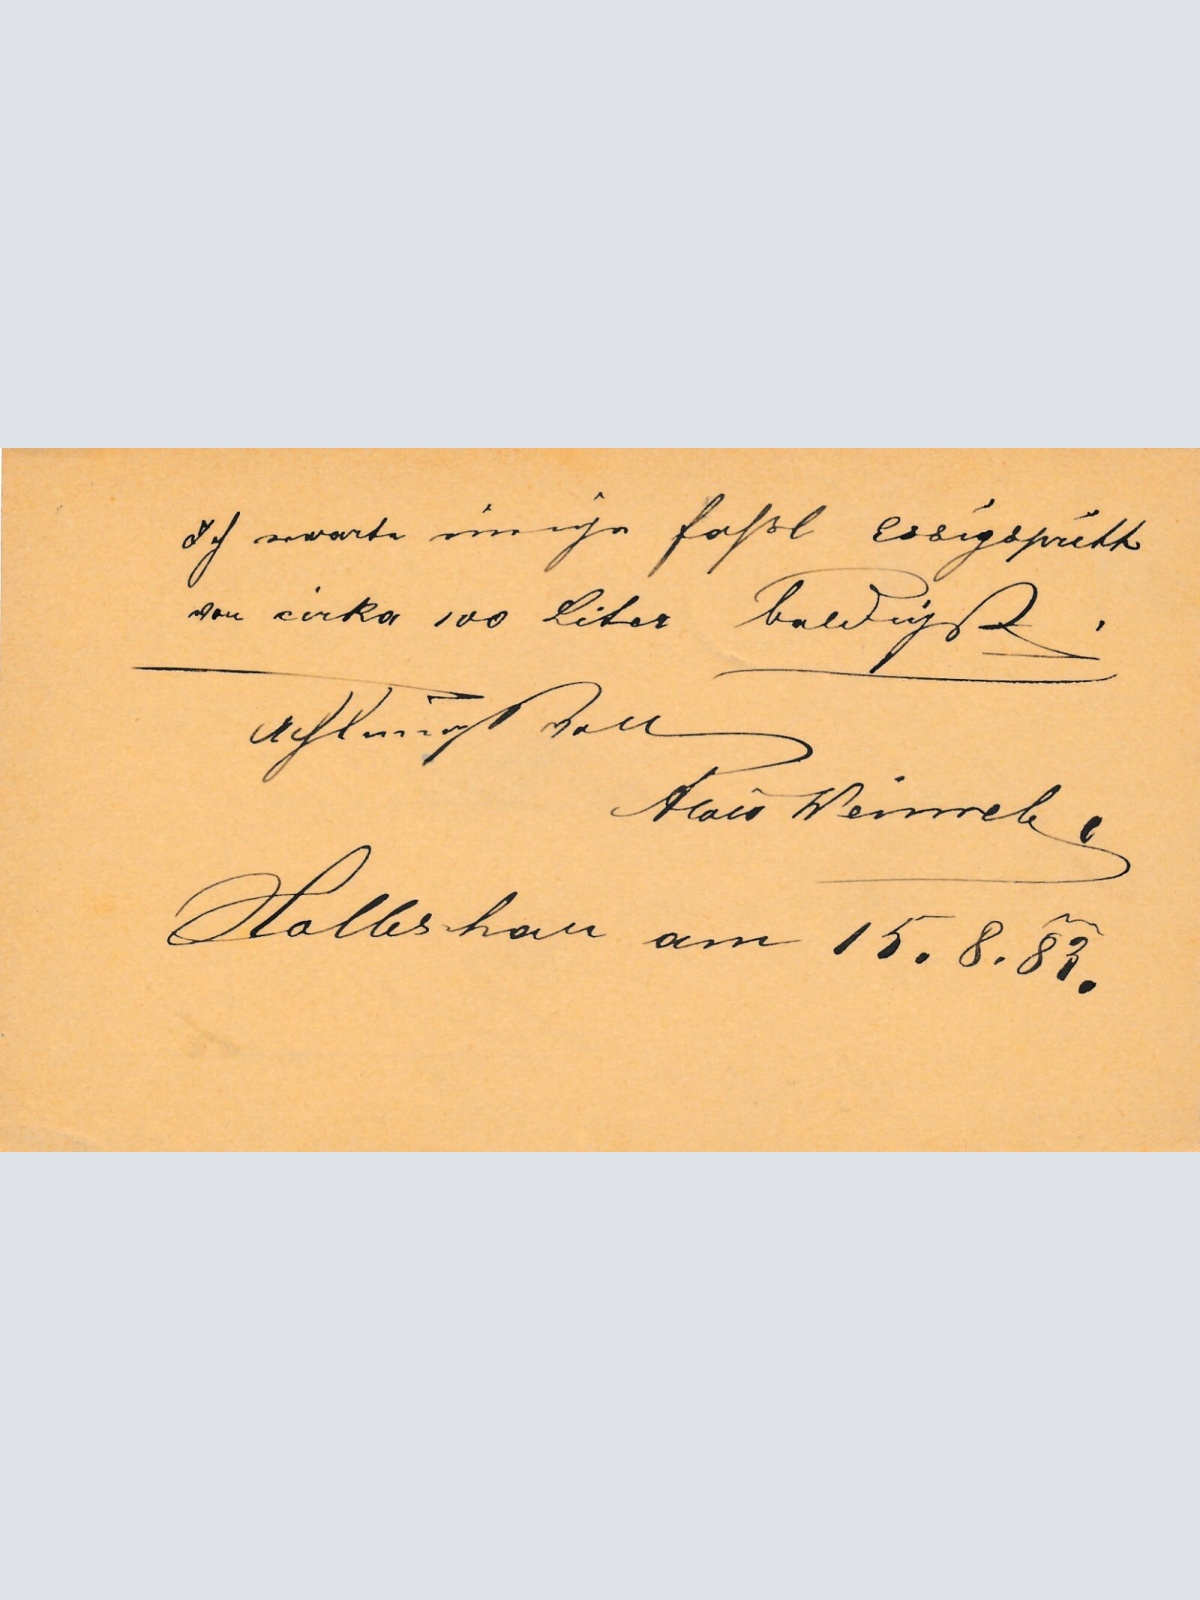 Ich erwarte einige faßl Essigspritt
von cirka 100 Liter baldigst.
Achtungsvoll
Alois Weinreb
Holleschau am 15. 8. 83.